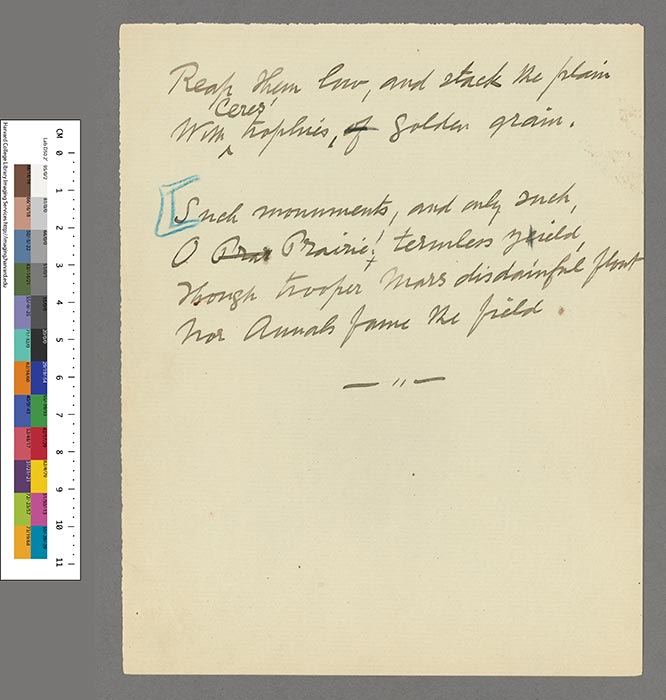 Reap them low, and stack the plain
Ceres'
With trophies, of golden grain.
Such monuments, and only such,
O Prar Prairie! termless yield,
Though trooper Mars disdainful flout
Nor Annals fame the field.
CM 0 1 2 3 4 5 6 7 8 9 10 11
Harvard College Library Imaging Services http://imaging.harvard.edu